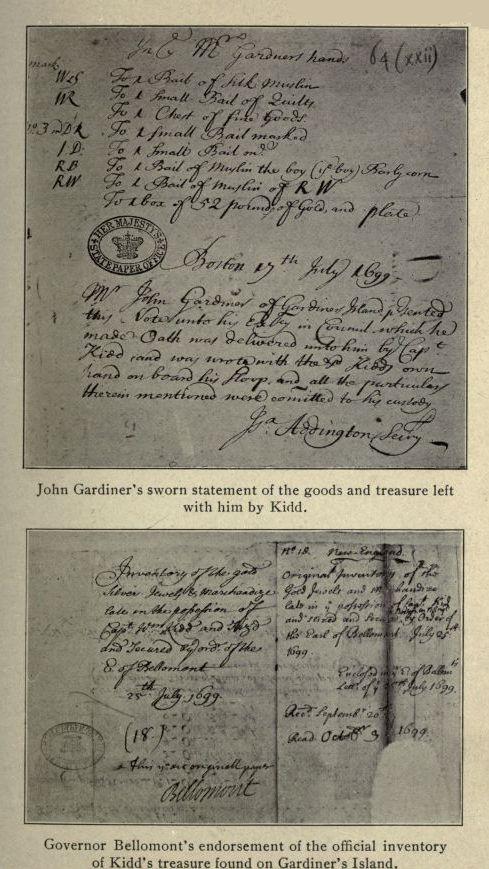 In Mr Gardners hands 64 (xxii)
mark
W&S To 1 Bail of Silk Muslin
WR To 1 Small Bail of Quilts
To 1 Chest of fine Goods
No 3 mDR To 1 Small Bail marked
ID To 1 Small Bail md
RB To 1 Bail of Muslin the boy (ye boy) Barlycorn
RW To 1 Bail of Muslin of RW
To 1 box of 52 pounds of Gold, and plate
HER MAJESTY'S STATE PAPER OFFICE
Boston 17th July 1699
Mr John Gardiner of Gardiners Island p.sented
this Note unto his in Council which he
made Oath was delivered unto him by Capt
Kidd and was wrote with the sd Kidds own
hand on board his Sloop, and all the particulars
therein mentioned were comitted to his custody
Jsa Addington Secry
John Gardiner's sworn statement of the goods and treasure left
with him by Kidd.
Inventory of the gold
Silver Jewels & Merchandize
late in the possesion of
Capt Wm Kidd and
and Secured by ord. of the
E of Bellomont
25th July 1699
(18)
This is ye originall paper
Bellomont
No 18. New-England.
Original Inventory of the
Gold Jewels and
late in ye possesion of Capt Kidd
and Seized and Secured by Order of
the Earl of Bellomont. July 25
1699.
Enclosed in ye E of Bellom
of ye July 1699
Recd Septembr 20th
Read Octob 3 1699
Governor Bellomont's endorsement of the official inventory
of Kidd's treasure found on Gardiner's Island.